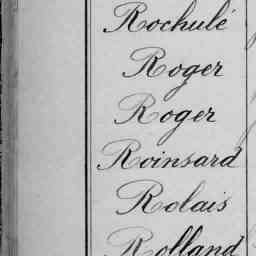 Rochulé
Roger
Roger
Roinsard
Rolais
Rolland